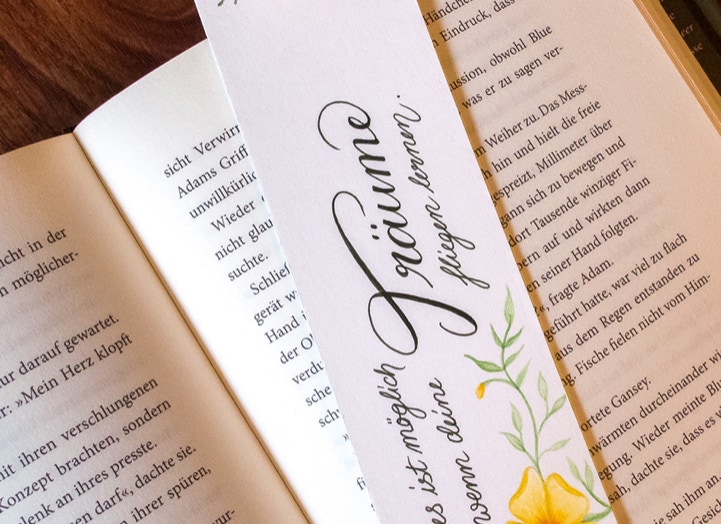 icht in der
möglicher-
ur darauf gewartet.
r: »Mein Herz klopft
mit ihren verschlungenen
Konzept brachten, sondern
denk an ihres presste.
en darf«, dachte sie.
ihrer spüren,
sicht Verwirr
Adams Griff
unwillkürlic
Wieder
nicht glau
suchte.
Schließ
gerät w
Hand i
der Ob
verdu
sche
sch
es ist möglich
wenn deine
Träume
fliegen lernen.
Händchen
Eindruck, dass
ussion, obwohl Blue
was er zu sagen ver-
m Weiher zu. Das Mess-
hin und hielt die freie
gespreizt, Millimeter über
gann sich zu bewegen und
dort Tausende winziger Fi-
ern auf und wirkten dann
en seiner Hand folgten.
«, fragte Adam.
geführt hatte, war viel zu flach
aus dem Regen entstanden zu
g. Fische fielen nicht vom Him-
ortete Gansey.
wärmten durcheinander wi
egung. Wieder meinte Bl
sah, dachte sie, dass es
sah sie ihm an